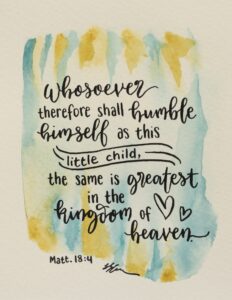 whosoever
therefore shall humble
himself as this
little child,
the same is greatest
in the
kingdom of
heaven.
Matt. 18:4